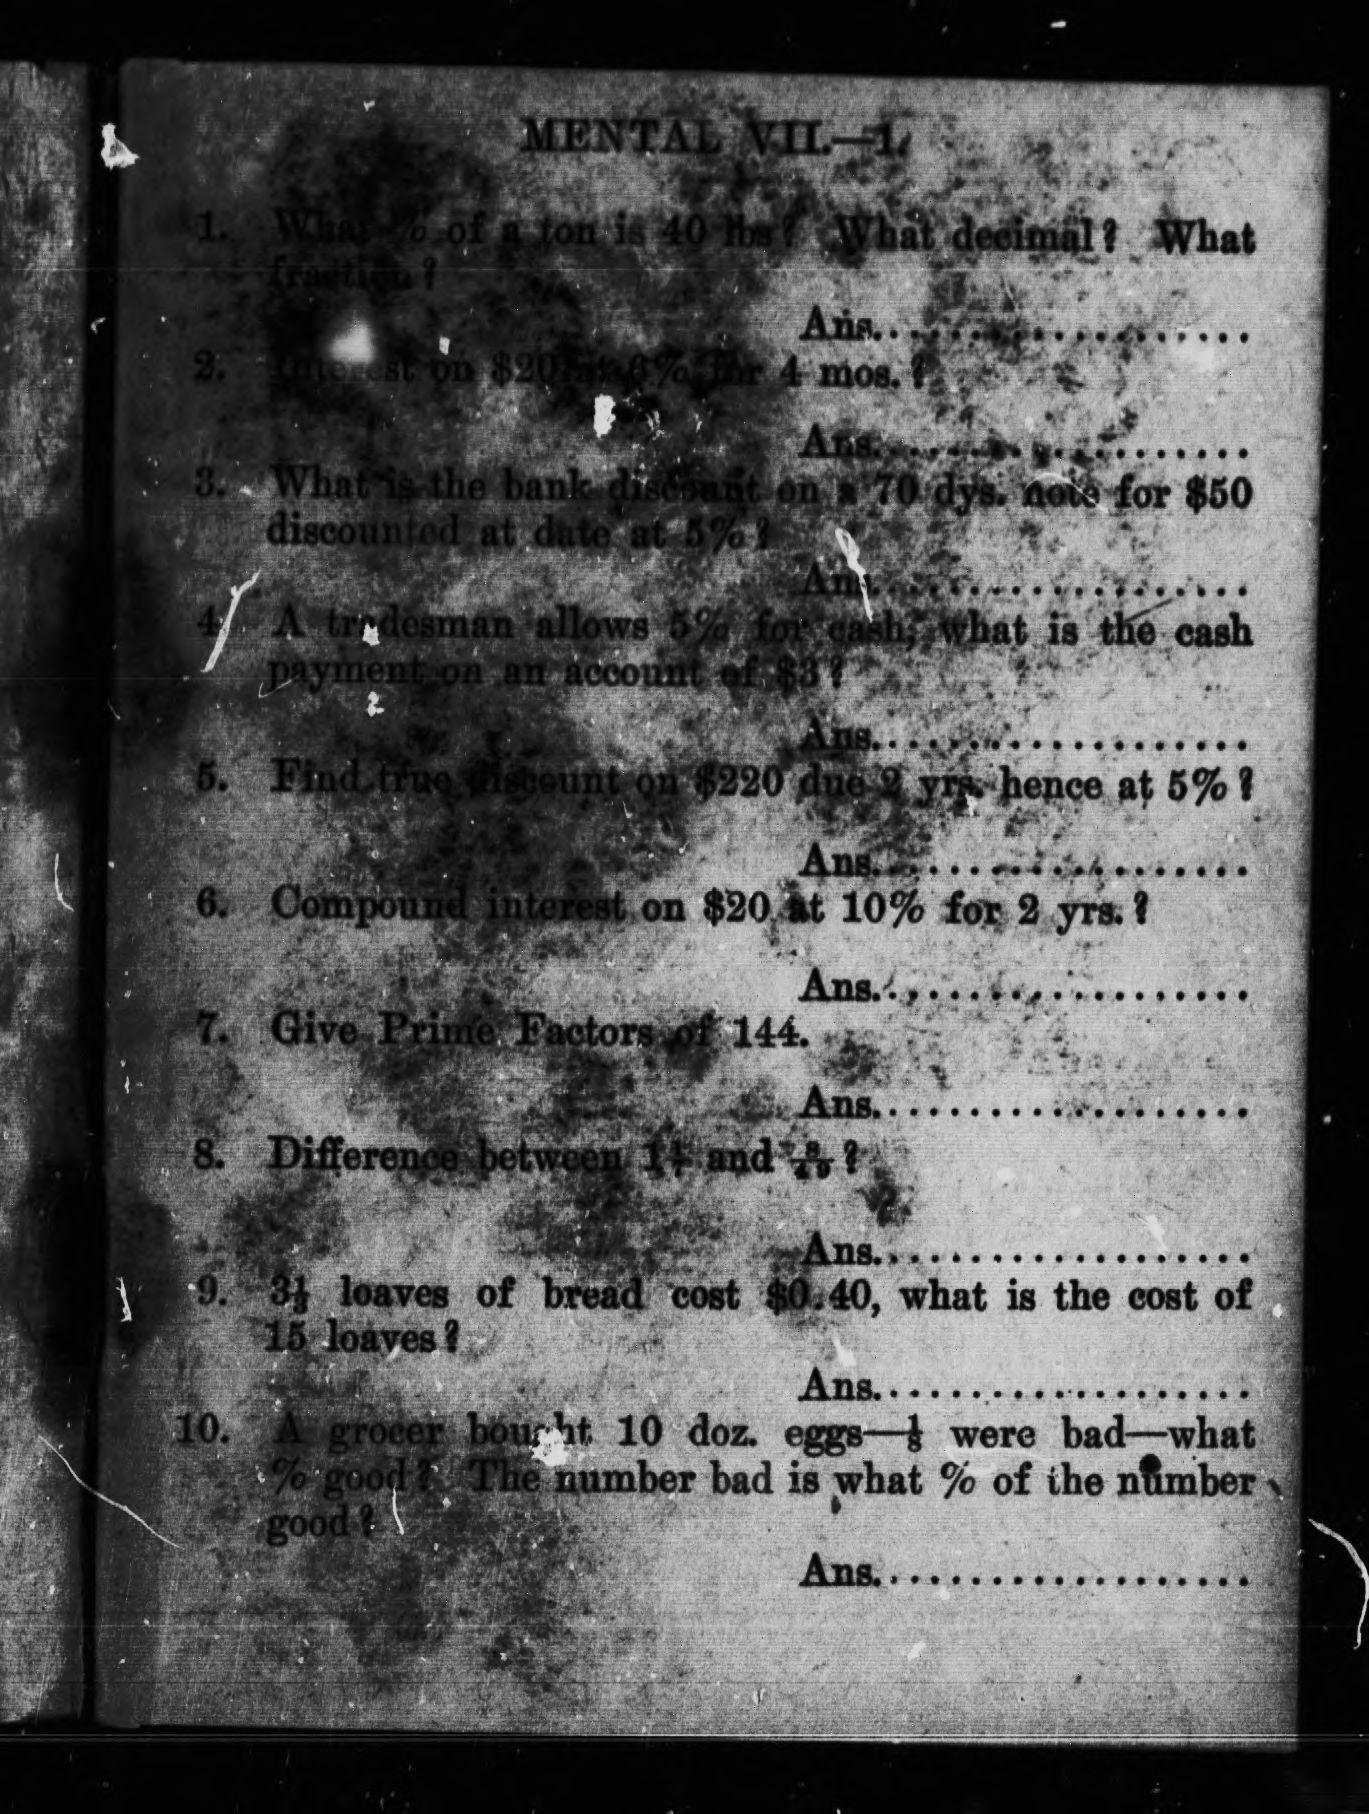 MENTAL VII.—1.
1. What % of a ton is 40 lbs? What decimal? What
fraction?
Ans....................
2. Interest on $20 at 6% for 4 mos.?
Ans....................
3. What is the bank discount on a 70 dys. note for $50
discounted at date at 5%?
Ans....................
4. A tradesman allows 5% for cash; what is the cash
payment on an account of $3?
Ans....................
5. Find true discount on $220 due 2 yrs. hence at 5%?
Ans....................
6. Compound interest on $20 at 10% for 2 yrs.?
Ans....................
7. Give Prime Factors of 144.
Ans....................
8. Difference between 1 1/7 and 8/49?
Ans....................
9. 3⅓ loaves of bread cost $0.40, what is the cost of
15 loaves?
Ans....................
10. A grocer bought 10 doz. eggs—⅛ were bad—what
% good? The number bad is what % of the number
good?
Ans....................